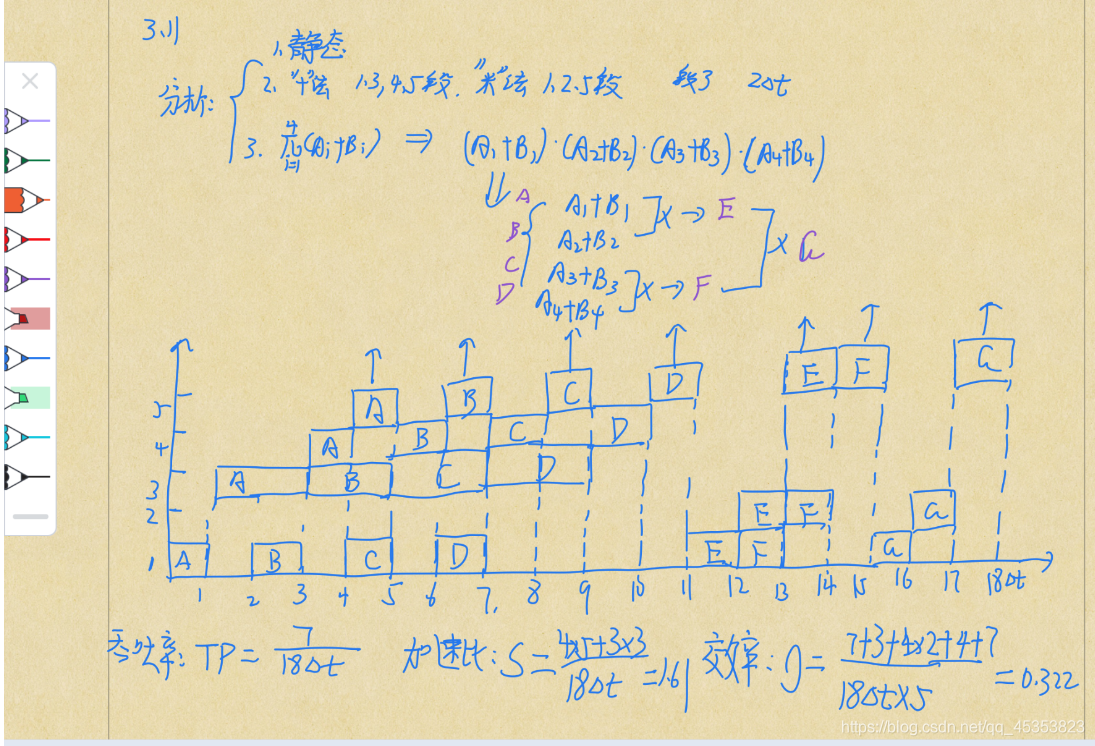 3.11
分析:
1. 静态
2. "十"法 1.3,4.5段. "米"法 1.2.5段 段3 2Δt
3. ∏(Ai+Bi) ⇒ (A1+B1)·(A2+B2)·(A3+B3)·(A4+B4)
4
i=1
A A1+B1 ]× → E
B A2+B2
× G
C A3+B3 ]× → F
D A4+B4
E F G
A B C D
5
A B C D
4
A B C D
3
E F G
2
A B C D E F G
1
1 2 3 4 5 6 7. 8 9 10 11 12 13 14 15 16 17 18Δt
吞吐率: TP = 7/18Δt 加速比: S = 4x5+3x3/18Δt = 1.61 效率: η = 7+3+4x2+4+7/18Δt×5 = 0.322
https://blog.csdn.net/qq_45353823